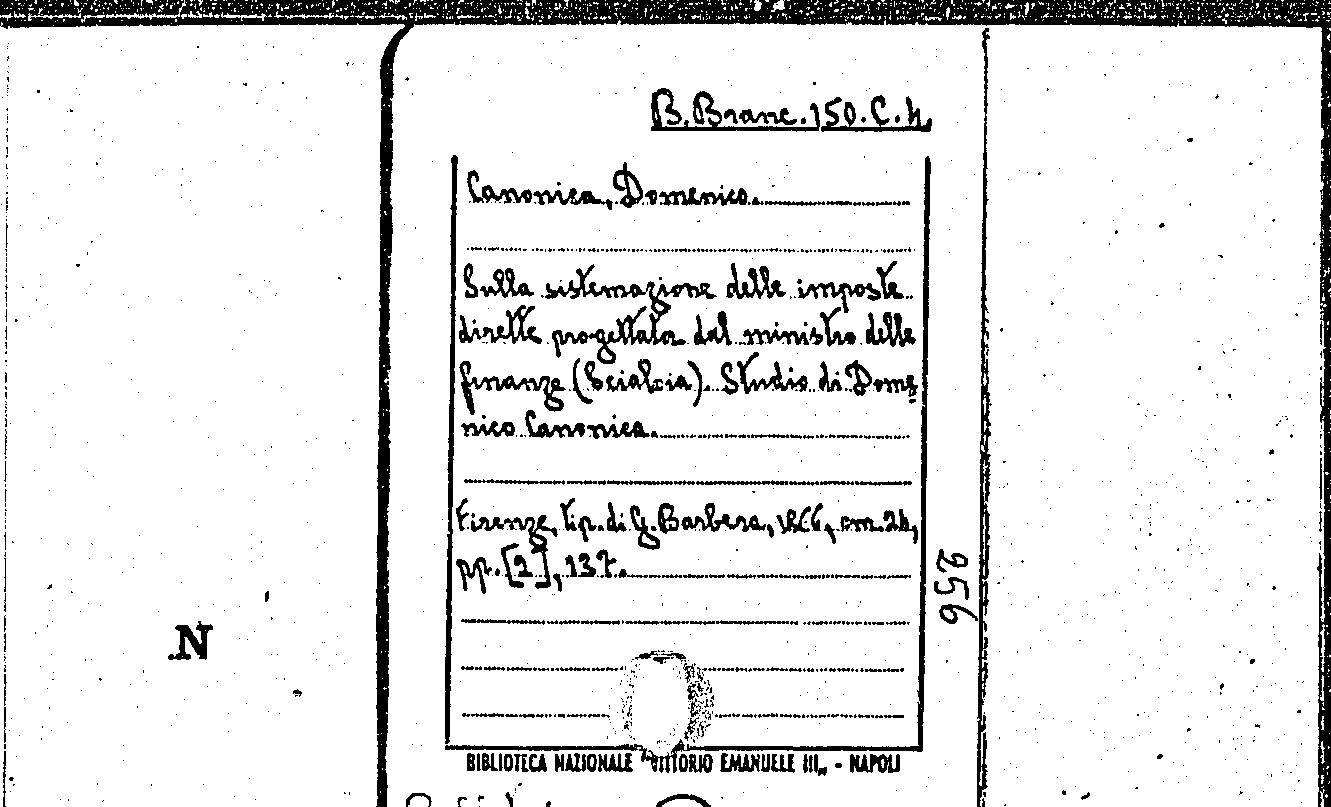 B. Branc. 150. C. 4.
Canonica, Domenico.
Sulla sistemazione delle imposte
dirette progettata dal ministro delle
finanze (Scialoia). Studio di Dome
nico Canonica.
Firenze, tip. di G. Barbera, 1866, cm. 24,
pp. [2], 137.
256
N
BIBLIOTECA NAZIONALE "VITTORIO EMANUELE III„ - NAPOLI